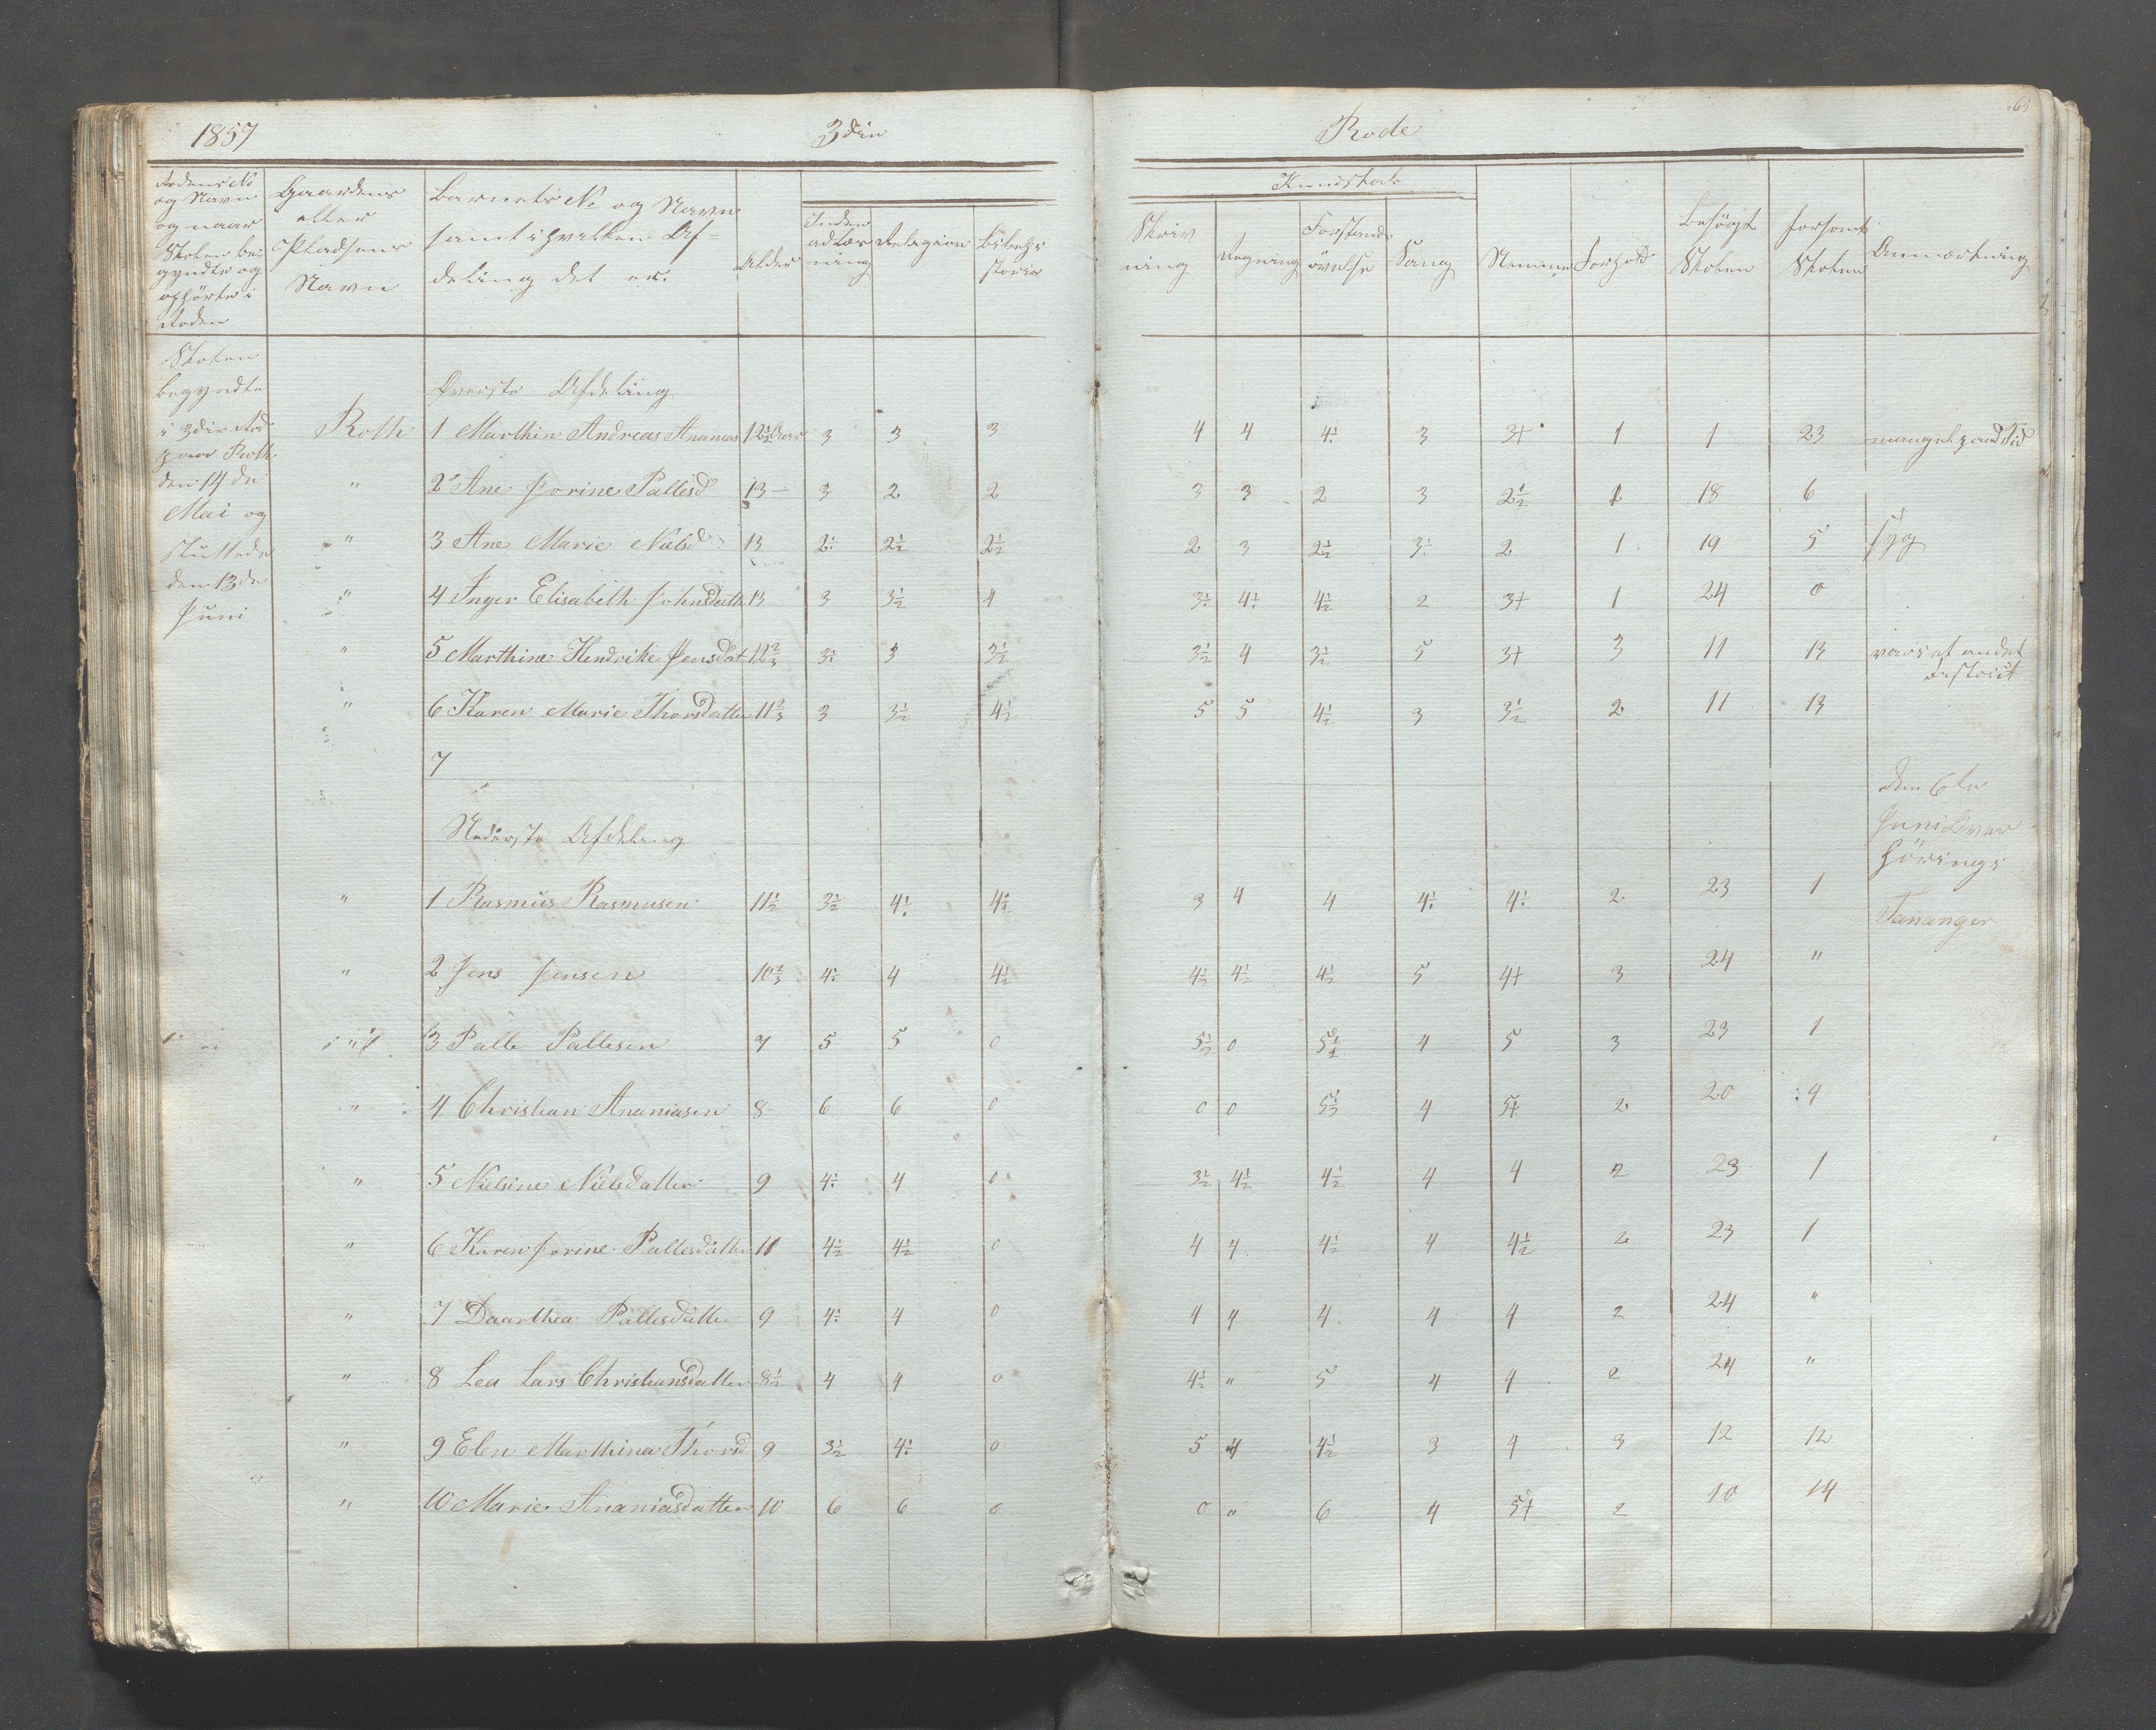 1857 3die Rode
Rodens No og Navn og naar Skolen begyndte og ophörte i Roden
Gaardens eller Pladsens Navn
Barnets No og Navn samt i hvilken Afdeling det er.
Alder
Inden ad Læsning
Religion
Bibelhistorie
Kundskab
Skrivning
Regning
Forstands övelse
Sang
Nemme
Forhold
Besögt Skolen
forsömt Skolen
Anmærkning
Skolen
begyndte
i 3die Rod
paa Roth
den 14de
Mai og
sluttede
den 13de
Juni
Överste Afdeling
Roth 1 Marthin Andreas Ananias 12½ Aar 3 3 3 4 4 4½ 3 3+ 1 1 23 mangel paa Tid
" 2 Ane Jorine Pallesd 13 3 2 2 3 3 2 3 2½ 1 18 6
" 3 Ane Marie Nielsd 13 2½ 2½ 2½ 2 3 2½ 3½ 2 1 19 5 syg
" 4 Inger Elisabeth Johnsdatter 13 3 3½ 4 3½ 4½ 4½ 2 3+ 1 24 0
" 5 Marthine Hendrike Jensdat 12⅔ 3½ 3 3½ 3½ 4 3½ 5 3+ 3 11 13 været i et andet Distrikt
" 6 Karen Marie Thorsdatter 11⅔ 3 3½ 4½ 5 5 4½ 3 3½ 2 11 13
7
Nederste Afdeling
den 6te
Juni
hörings
Tananger
" 1 Rasmus Rasmusen 11½ 3½ 4½ 4½ 3 4 4 4½ 4½ 2 23 1
" 2 Jens Jensen 10⅔ 4½ 4 4½ 4½ 4½ 4½ 5 4+ 3 24 "
" 3 Palle Pallesen 7 5 5 0 5½ 0 5½ 4 5 3 23 1
" 4 Christian Ananiasen 8 6 6 0 0 0 5½ 4 5+ 2 20 4
" 5 Nielsine Nielsdatter 9 4½ 4 0 3½ 4½ 4½ 4 4 2 23 1
" 6 Karen Jorine Pallesdatter 11 4½ 4½ 0 4 4 4½ 4 4½ 2 23 1
" 7 Daarthea Pallesdatter 9 4½ 4 0 4 4 4 4 4 2 24 "
" 8 Lea Lars Christiansdatter 8½ 4 4 0 4½ " 5 4 4 2 24 "
" 9 Elen Marthine Thorsd 9 3½ 4½ 0 5 4 4½ 3 4 3 12 12
" 10 Marie Ananiasdatter 10 6 6 0 0 " 6 4 5+ 2 10 14